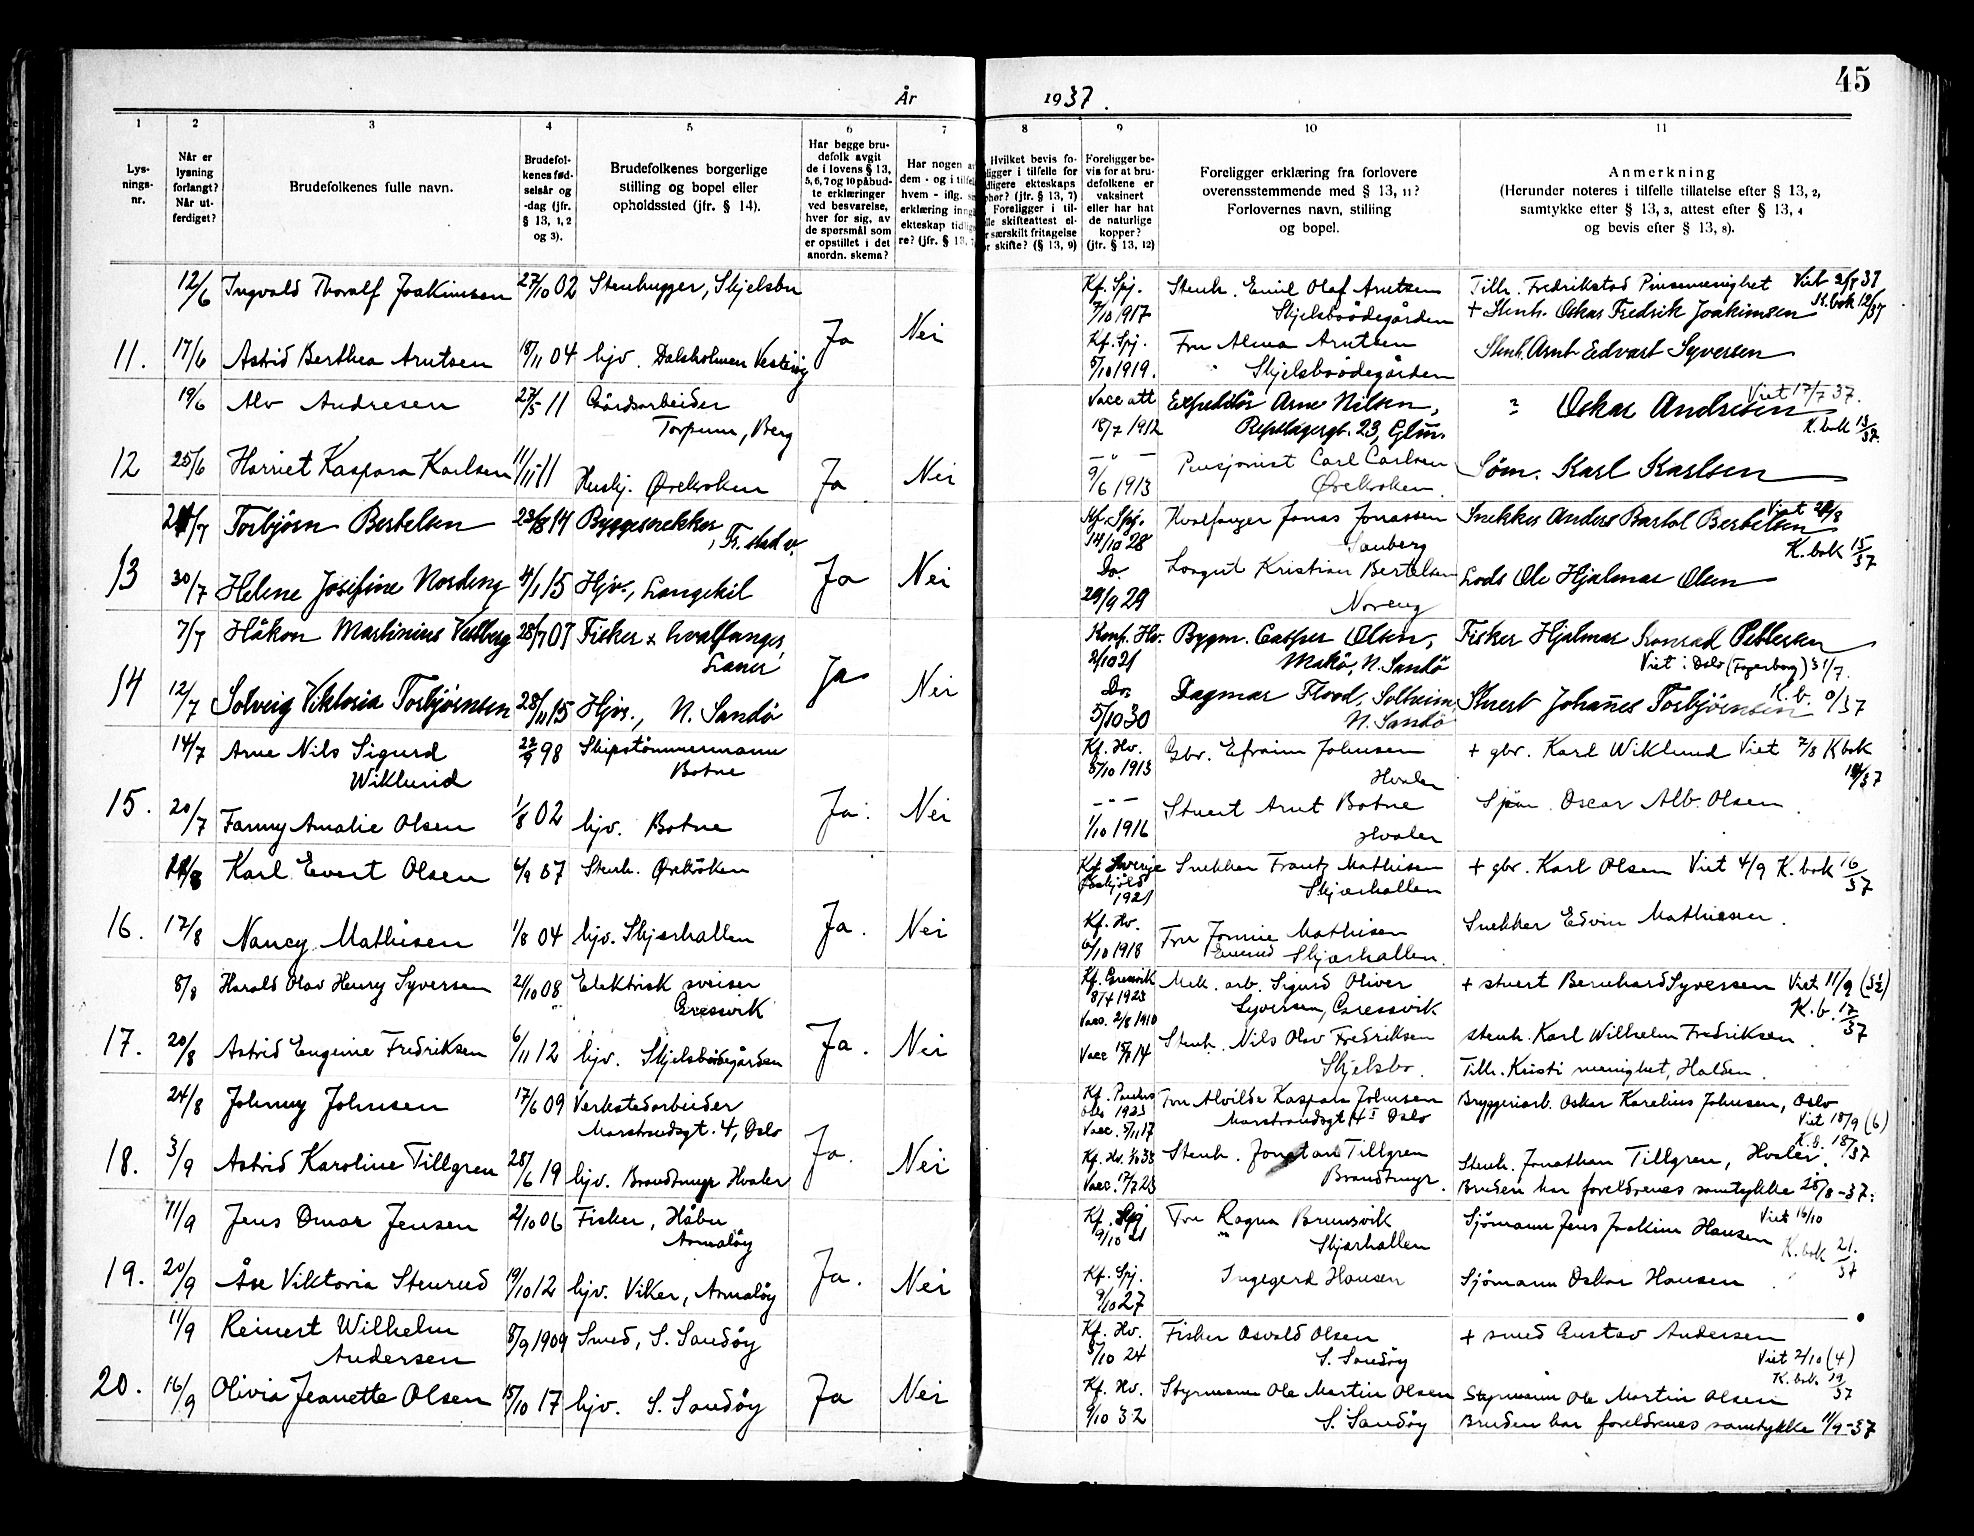 45
År 1937.
1 2 3 4 5 6 7 8 9 10 11
Lysnings-nr.
Når er lysning forlangt? Når utferdiget?
Brudefolkenes fulle navn.
Brudefolkenes fødselsår og -dag (jfr. § 13, 1, 2 og 3).
Brudefolkenes borgerlige stilling og bopel eller opholdssted (jfr. § 14).
Har begge brudefolk avgit de i lovens § 13, 5, 6, 7 og 10 påbudte erklæringer ved besvarelse, hver for sig, av de spørsmål som er opstillet i det anordn. skema?
Foreligger bevis for at brudefolkene er vaksinert eller har hat de naturlige kopper? (jfr. § 13, 12)
Foreligger erklæring fra forlovere overensstemmende med § 13, 11? Forlovernes navn, stilling og bopel.
Anmerkning
(Herunder noteres i tilfelle tillatelse efter § 13, 2, samtykke efter § 13, 3, attest efter § 13, 4 og bevis efter § 13, 8).
12/6 Ingvald Thoralf Joakimsen 27/10 02 Stenhugger, Skjelsbu
Kf. Spj. 7/10 1917 Stenh. Emil Olaf Arntsen Skjelsboødegården
Tilh. Fredrikstad Pinsemenighet Viet 2/7 37
+ Stenh. Oskar Fredrik Joakimsen K.bok 12/37
11. 17/6 Astrid Berthea Arntsen 18/11 04 hjv. Daleholmen Vesterøy Ja Nei
Kf. Spj. 5/10 1919. Fru Alma Arntsen Skjelsboødegården
Stenh. Arnt Edvart Syversen
19/6 Alv Andresen 27/5 11 Gårdsarbeider Torpum, Berg
Vacc att 18/7 1912 Expeditør Arne Nilsen, Repslagergt. 23,
Oskar Andresen Viet 17/7 37. K. bok 13/37.
12 25/6 Harriet Kaspara Karlsen 11/11 11 Husbj. Ørekroken Ja Nei
9/6 1913 Pensjonist Carl Carlsen Ørekroken.
Søm. Karl Karlsen
21/7 Torbjørn Bertelsen 23/8 14 Byggesnekker, Fr.stad v.
Kf. Spj. 14/10 28 Hvalfanger Jonas Jonassen
Snekker Anders Bartol Bertelsen Viet 28/8 K. bok 15/37
13 30/7 Helene Josefine Nordeng 4/1 15 Hjv., Langekil Ja Nei
Do. 29/9 29 Kristian Bertelsen Noreng
Lods Ole Hjalmar Olsen
7/7 Håkon Martinius Vedberg 28/7 07 Fisker & hvalfanger,
Konf. Hv. 2/10 21 Bygm. Casper Olsen, Makø, N. Sandø
Fisker Hjalmar Konrad Pettersen
Viet i Oslo (Fagerborg) 31/7.
14 12/7 Solveig Viktoria Torbjørnsen 28/11 15 Hjv., N. Sandø Ja Nei
Do. 5/10 30 Dagmar Flood, Solheim, N. Sandø
Stuert Johannes Torbjørnsen K.b. 0/37
14/7 Arne Nils Sigurd Wiklund 22/9 98 Skipstømmermann Botne
Kf. Hv. 5/10 1913 Gbr. Efraim Johnsen Hvaler
+ gbr. Karl Wiklund Viet 7/8 K bok 14/37
15. 20/7 Fanny Amalie Olsen 1/8 02 hjv. Botne Ja. Nei
1/10 1916 Stuert Arnt Botne Hvaler
Sjøm. Oscar Alb. Olsen.
11/8 Karl Evert Olsen 6/9 07 Stenh. Ørekroken
Kf. Sverige 1921 Snekker Frantz Mathisen Skjærhallen
+ gbr. Karl Olsen Viet 4/9 K. bok 16/37
16. 17/8 Nancy Mathisen 1/8 04 hjv. Skjærhallen Ja. Nei
Kf. Hv. 6/10 1918 Fru Jonnie Mathisen Skjærhallen.
Snekker Edvin Mathiesen.
8/8 Harald Olav Henry Syversen 21/10 08 Elektrisk sveiser Gressvik
Kf. Gressvik 8/4 1923 Vacc. 2/8 1910 Mek. arb. Sigurd Oliver Syversen, Gressvik
+ stuert Bernhard Syversen Viet 11/9 (5½) K. b. 17/37
17. 20/8 Astrid Eugenie Fredriksen 6/11 12 hjv. Skjelsboødegården Ja. Nei
Vacc 15/7 14 Stenh. Nils Olav Fredriksen Skjelsbo.
stenh. Karl Wilhelm Fredriksen.
Tilh. Kristi menighet, Halden.
24/8 Johnny Johnsen 17/6 09 Verkstedarbeider Marstrandsgt. 4, Oslo
Kf. Paulus Oslo 1923 Vacc. 5/11 17 Fru Alvilde Kaspara Johnsen Marstrandsgt 4 I Oslo
Bryggeriarb. Oskar Karelius Johnsen, Oslo Viet 18/9 (6) K.b. 18/37
18. 3/9 Astrid Karoline Tillgren 28/6 19 hjv. Brandtmyr Hvaler Ja. Nei
Kf. Hv. Vacc. 17/7 23 Stenh. Jonatan Tillgren Brandtmyr.
Stenh. Jonathan Tillgren, Hvaler.
Bruden har foreldrenes samtykke 28/8-37.
11/9 Jens Omar Jensen 2/10 06 Fisker, Håbu Asmaløy
Kf. Spj 9/10 21 Fru Ragna Brunsvik Skjærhallen
Sjømann Jens Joakim Hansen Viet 16/10 K. bok 21./37
19. 20/9 Åse Viktoria Stenrud 19/10 12 hjv. Viker, Asmaløy Ja. Nei
Kf. Spj. 9/10 27 Ingegerd Hansen
Sjømann Oskar Hansen
11/9 Reinert Wilhelm Andersen 8/9 1909 Smed, S. Sandøy
Kf. Hv. 5/10 24 Fisker Osvald Olsen S. Sandøy
+ smed Gustav Andersen Viet 2/10 (4) K. bok 19/37
20. 16/9 Olivia Jeanette Olsen 15/10 17 hjv. S. Sandøy Ja Nei
Kf. Hv. 9/10 32 Styrmann Ole Martin Olsen S. Sandøy
Styrmann Ole Martin Olsen
Bruden har foreldrenes samtykke 11/9-37